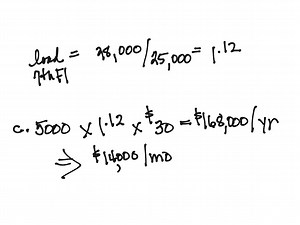 load = 28,000/25,000 = 1.12
7th Fl
c. 5000 x 1.12 x $30 = $168,000/yr
⇒ $14,000/mo